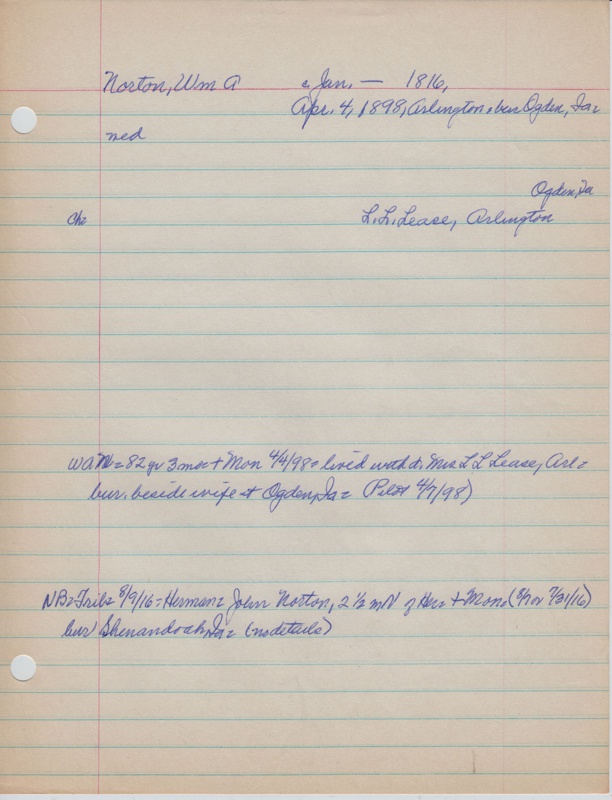 Norton, Wm A c Jan. — 1816,
Apr. 4, 1898, Arlington, bur Ogden, Ia=
med
Ogden, Ia
Ch=
L. L. Lease, Arlington
WAN= 82 yr 3 mos + Mon 4/4/98= lived with d. Mrs L L Lease, Arl=
bur. beside wife at Ogden, Ia= Pilot 4/7/98)
NB= Trib= 8/9/16= Herman= John Norton, 2 1/2 mi N of Her= + Mon. (8/7 or 7/31/16)
bur Shenandoah, Ia= (no details)